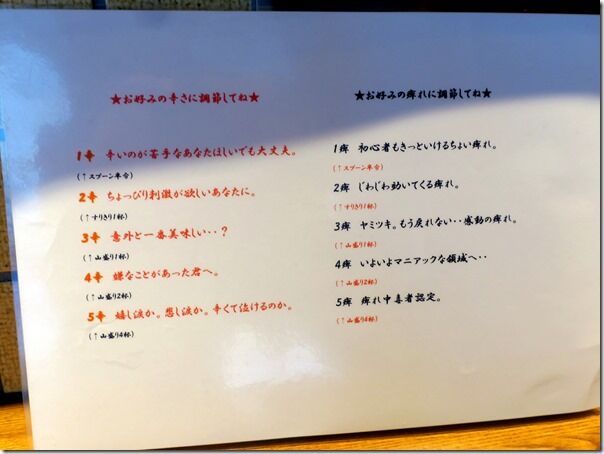 ★お好みの辛さに調節してね★
1辛 辛いのが苦手なあなたはしいでも大丈夫。
(↑スプーン半分)
2辛 ちょっぴり刺激が欲しいあなたに。
(↑すりきり1杯)
3辛 意外と一番美味しい・・?
(↑山盛り1杯)
4辛 嫌なことがあった君へ。
(↑山盛り2杯)
5辛 嬉し涙か。悲し涙か。辛くて泣けるのか。
(↑山盛り4杯)
★お好みの痺れに調節してね★
1痺 初心者もきっといけるちょい痺れ。
(↑スプーン半分)
2痺 じわじわ効いてくる痺れ。
(↑すりきり1杯)
3痺 ヤミツキ。もう戻れない・・感動の痺れ。
(↑山盛り1杯)
4痺 いよいよマニアックな領域へ・・
(↑山盛り2杯)
5痺 痺れ中毒者認定。
(↑山盛り4杯)